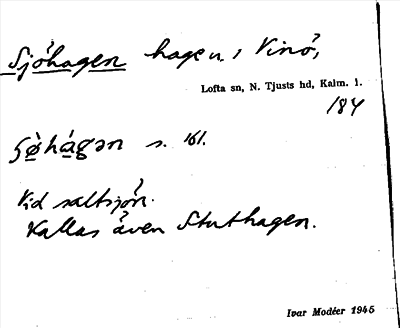 Sjöhagen hage n. i Vinö,
Lofta sn, N. Tjusts hd, Kalm. l.
184
s. 161.
Vid saltsjön.
Kallas även Stuthagen.
Ivar Modéer 1945